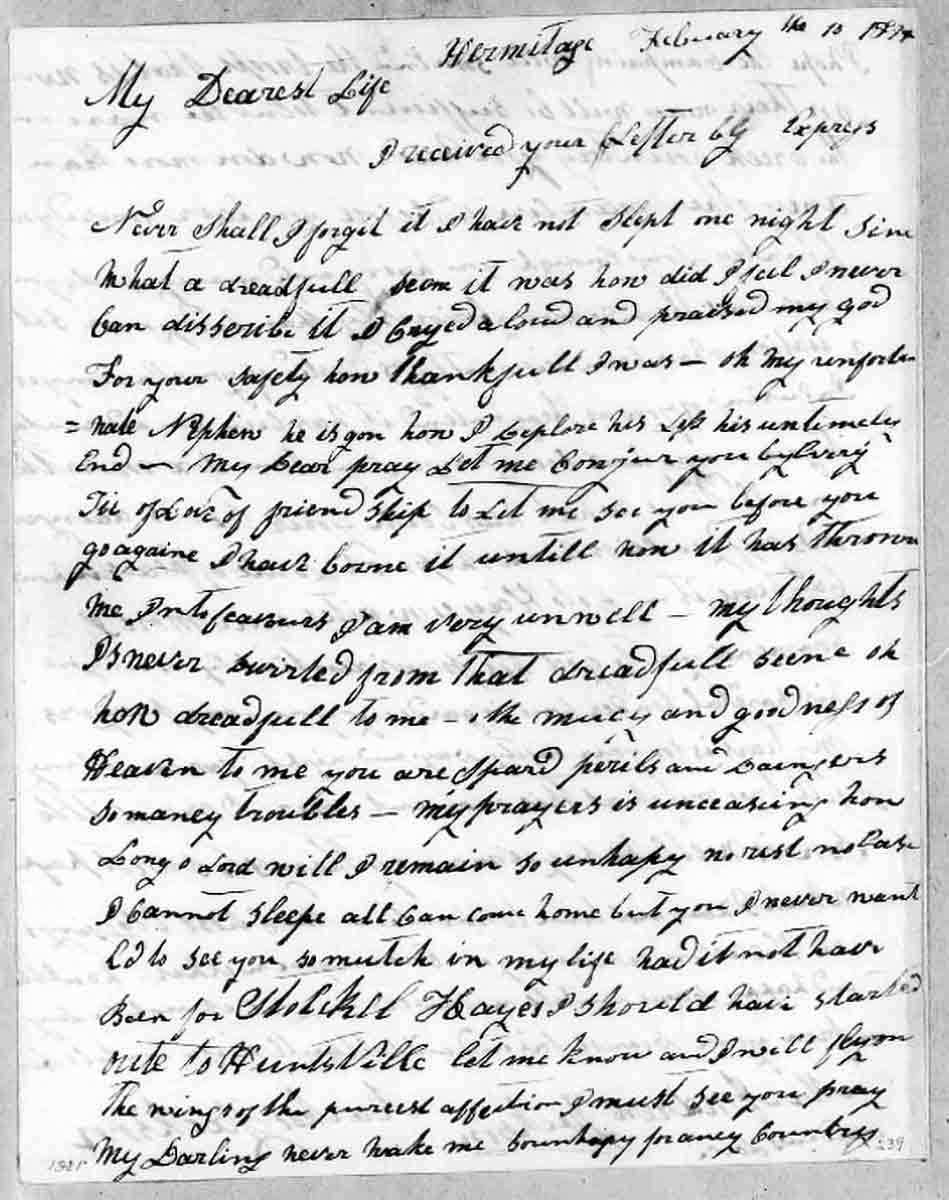 Hermitage February the 10 1814
My Dearest Life
I received your Letter by Express
Never Shall I forgit it I have not Slept one night Sinc
What a dreadfull seen it was how did I feel I never
Can disscribe it I Cryed aloud and praised my god
For your safety how thankfull I was — oh my unfortu
= nate Nephew he is gon how I deplore his Loss his untimely
End — My Dear pray Let me Conjur you by Every
Tie of Love of friend ship to Let me see you before you
go againe I have borne it untill now it has thrown
Me Into feavours I am very unwell — my thoughts
Is never diverted from that dreadfull scene oh
how dreadfull to me — o the mercy and goodness of
Heaven to me you are Spard perils and Dangers
so maney troubles — my prayers is unceasing how
Long o Lord will I remain so unhapy no rest no Ease
I Cannot sleepe all Can come home but you I never want
Ed to see you so mutch in my life had it not have
Been for Stokell Hayes I should have started
oute to Huntsville let me know and I will fly on
the wings of the purest affection I must see you pray
My Darling never make me so unhapy for aney Country
1821 239